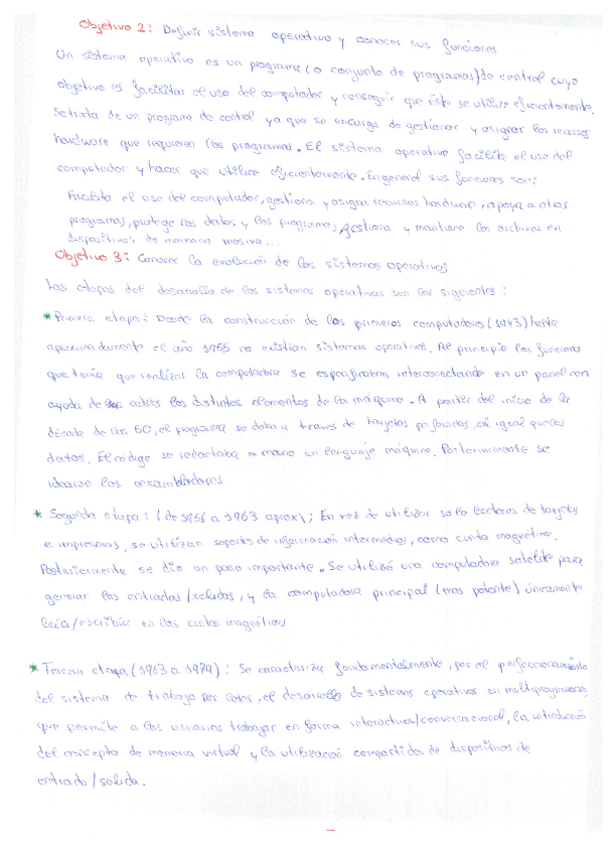 Objetivo 2: Definir sistema operativo y conocer sus funciones
Un sistema operativo es un programa (o conjunto de programas) de control cuyo
objetivo es facilitar el uso del computador y conseguir que éste se utilice eficientemente.
Se trata de un programa de control ya que se encarga de gestionar y asignar los recursos
hardware que requieren los programas. El sistema operativo facilita el uso del
computador y hacer que utilice eficientemente. En general sus funciones son:
Facilita el uso del computador, gestiona y asigna recursos hardware, apoya a otros
programas, protege los datos y los programas, gestiona y mantiene los archivos en
dispositivos de memoria masiva...
Objetivo 3: Conocer la evolución de los sistemas operativos
Las etapas del desarrollo de los sistemas operativos son las siguientes:
* Primera etapa: Desde la construcción de los primeros computadores (1943) hasta
aproximadamente el año 1955 no existían sistemas operativos. Al principio las funciones
que tenía que realizar la computadora se especificaban interconectando en un panel con
ayuda de los cables los distintos elementos de la máquina. A partir del inicio de la
década de los 50, el programa se daba a través de tarjetas perforadas, al igual que los
datos. El código se redactaba a mano en lenguaje máquina. Posteriormente se
idearon los ensambladores
* Segunda etapa: (de 1956 a 1963 aprox); En vez de utilizar solo lectoras de tarjetas
e impresoras, se utilizan soportes de información intermedios, como cinta magnética.
Posteriormente se dio un paso importante. Se utilizó una computadora satélite para
generar las entradas/salidas, y la computadora principal (mas potente) únicamente
leía/escribía en las cintas magnéticas
* Tercera etapa (1963 a 1979): Se caracteriza fundamentalmente, por el perfeccionamiento
del sistema de trabajo por lotes, el desarrollo de sistemas operativos en multiprogramación,
que permite a los usuarios trabajar en forma interactiva/conversacional, la introducción
del concepto de memoria virtual y la utilización compartida de dispositivos de
entrada/salida.